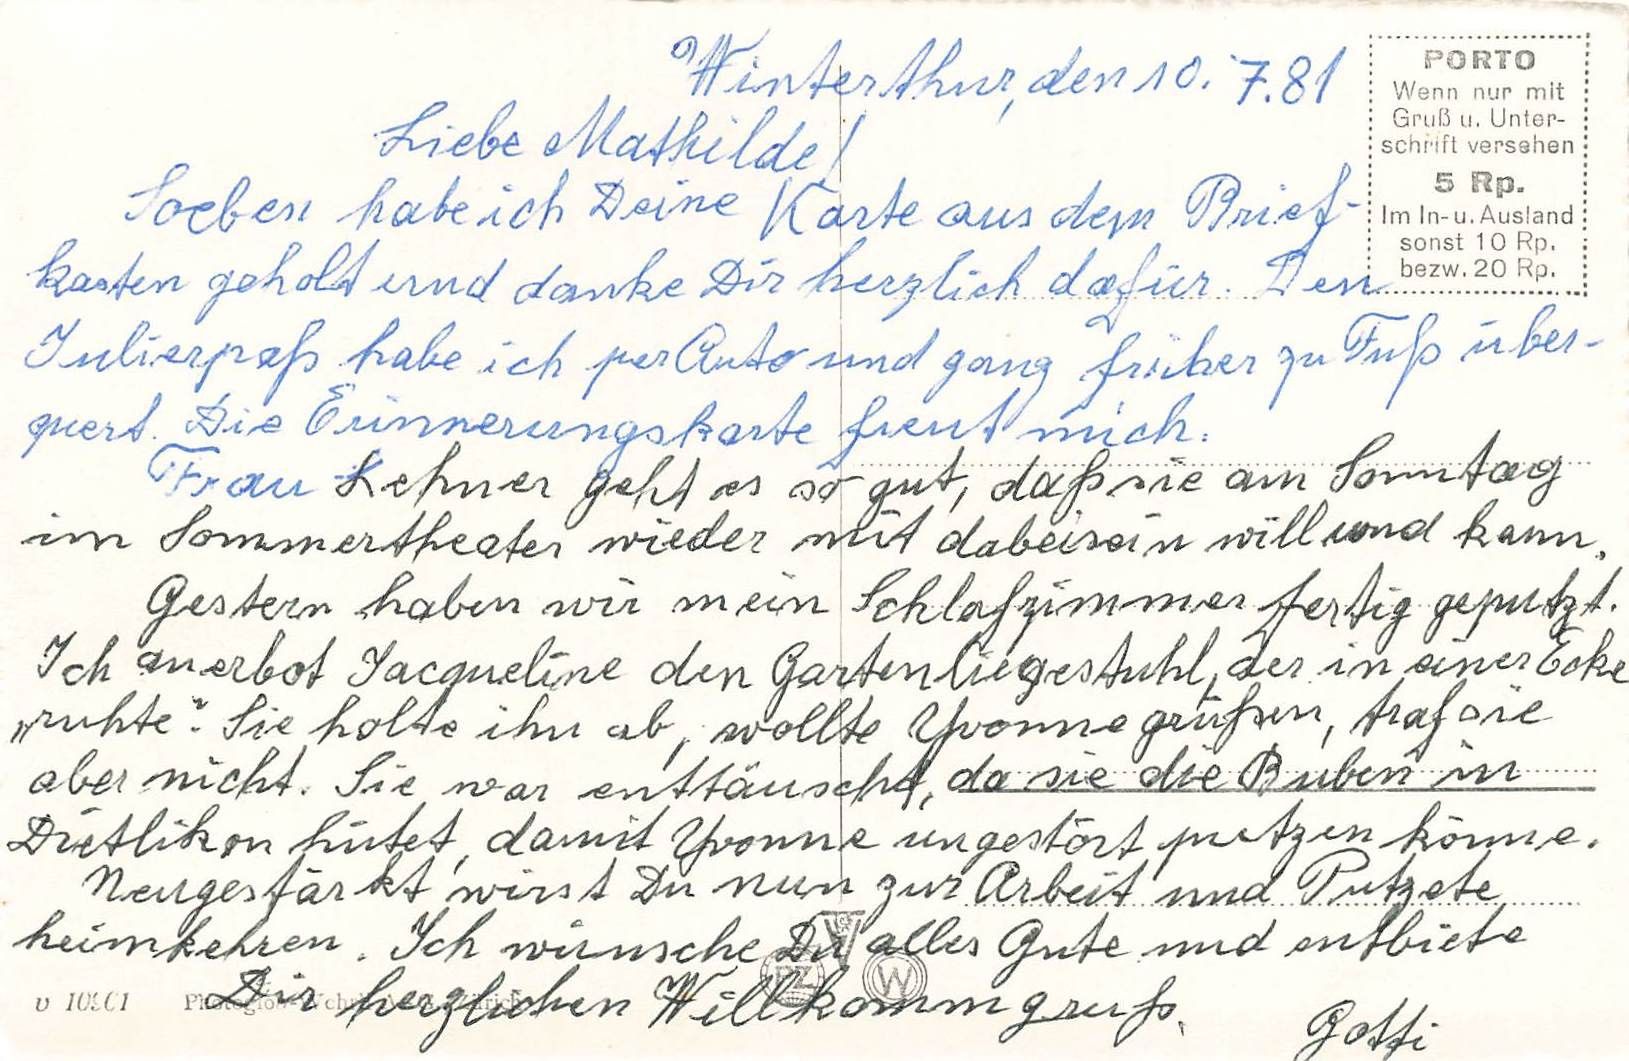 Winterthur, den 10. 7. 81
PORTO
Wenn nur mit
Gruß u. Unter-
schrift versehen
5 Rp.
Im In- u. Ausland
sonst 10 Rp.
bezw. 20 Rp.
Liebe Mathilde!
Soeben habe ich Deine Karte aus dem Brief-
kasten geholt und danke Dir herzlich dafür. Den
Julierpaß habe ich per Auto und ganz früher zu Fuß über-
quert. Die Erinnerungskarte freut mich.
Frau Lehner geht es so gut, daß sie am Sonntag
im Sommertheater wieder mit dabeisein will und kann.
Gestern haben wir mein Schlafzimmer fertig geputzt.
Ich anerbot Jacqueline den Gartenliegestuhl, der in einer Ecke
„ruhte“. Sie holte ihn ab, wollte Yvonne grüßen, traf sie
aber nicht. Sie war enttäuscht, da sie die Buben in
Dietlikon hütet, damit Yvonne ungestört putzen könne.
Neugestärkt wirst Du nun zur Arbeit und Putzete
heimkehren. Ich wünsche Dir alles Gute und entbiete
Dir herzlichen Willkommgruß.
Gotti
PZ
W